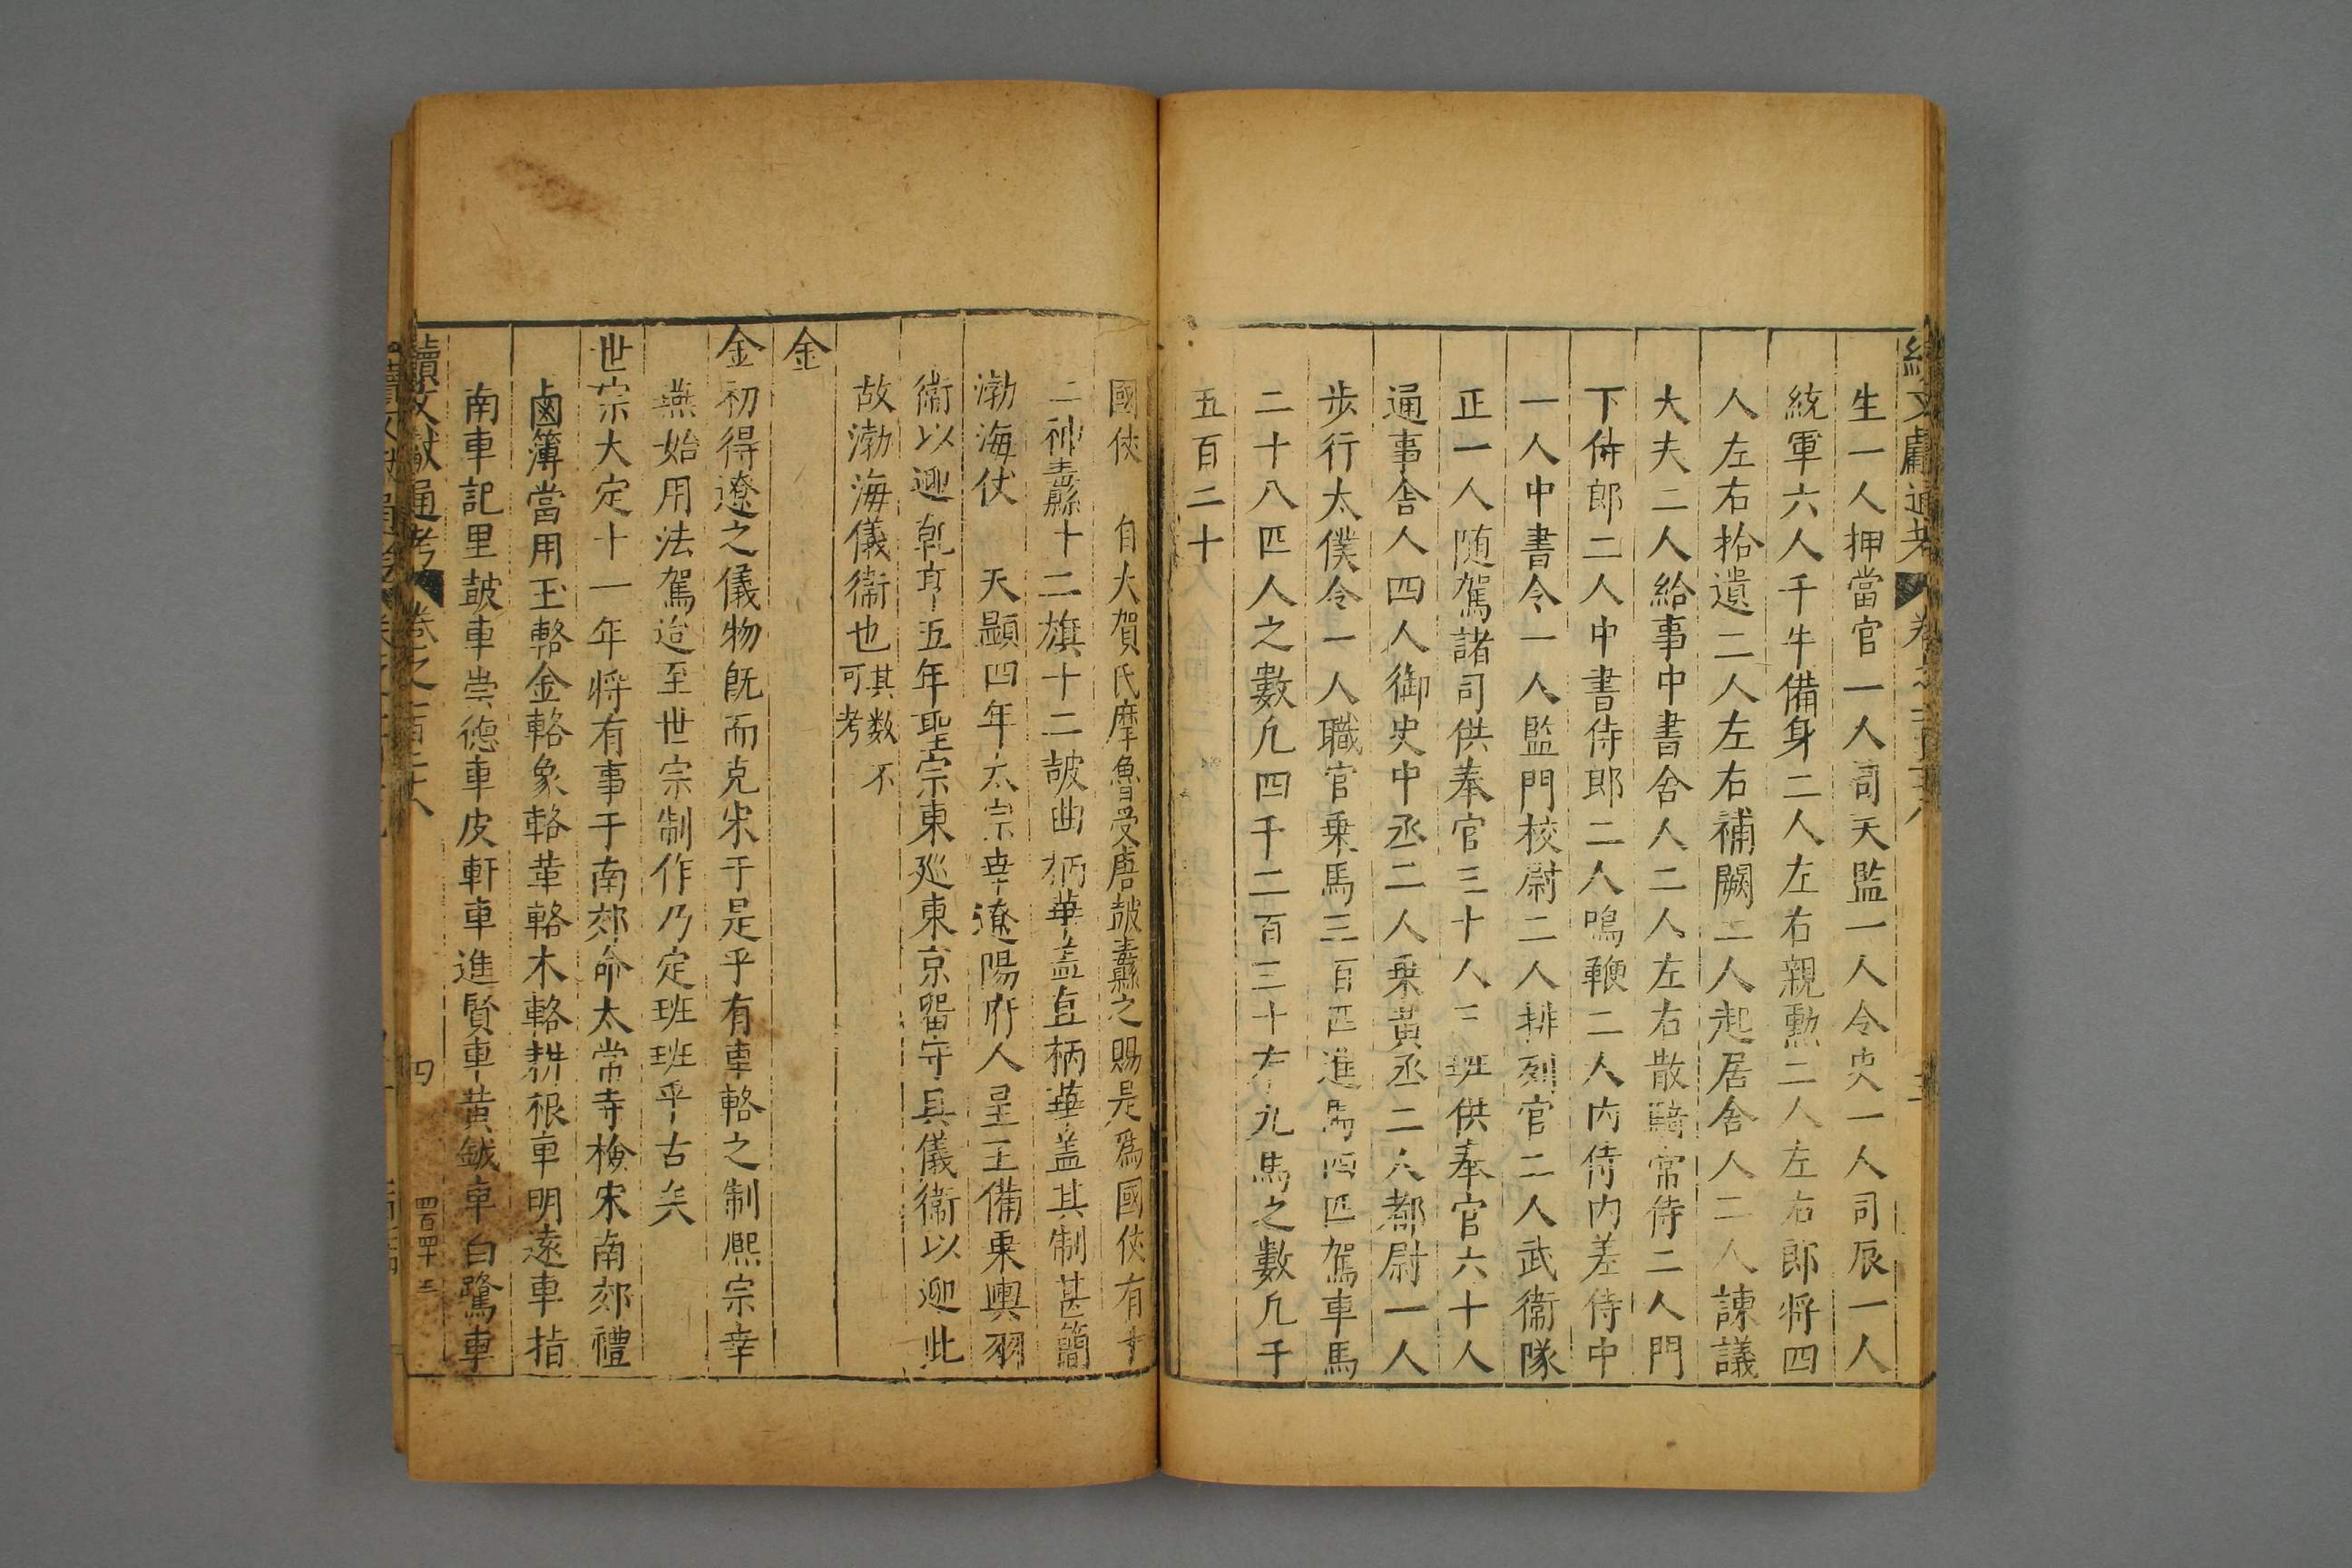 生一人押當官一人司天監一人令史一人司辰一人
統軍六人千牛備身二人左右親勳二人左右郎將四
人左右拾遺二人左右補闕二人起居舍人二人諫議
大夫二人給事中書舍人二人左右散騎常侍二人門
下侍郎二人中書侍郎二人鳴鞭二人內侍內差侍中
一人中書令一人監門校尉二人排列官二人武衛隊
正一人随駕諸司供奉官三十人三班供奉官六十人
通事舍人四人御史中丞二人乗黃丞二人都尉一人
步行太僕令一人職官乗馬三百匹進馬四匹駕車馬
二十八匹人之數凢四千二百三十有九馬之數凢千
五百二十
國仗 自大賀氏摩魯受唐皷纛之賜是爲國仗有十
二神纛十二旗十二皷曲柄華盖直柄華盖其制甚簡
渤海仗 天顯四年太宗幸遼陽府人皇王備乗輿羽
衛以迎乹亨五年聖宗東廵東京畱守具儀衛以迎此
故渤海儀衛也其数不可考
金
金初得遼之儀物旣而克宋于是乎有車輅之制熈宗幸
燕始用法駕迨至世宗制作乃定班班乎古矣
世宗大定十一年將有事于南郊命太常寺檢宋南郊禮
鹵簿當用玉輅金輅象輅革輅木輅耕根車明遠車指
南車記里皷車崇德車皮軒車進賢車黃鉞車白鷺車
續文獻通考 卷之一百二十八
四